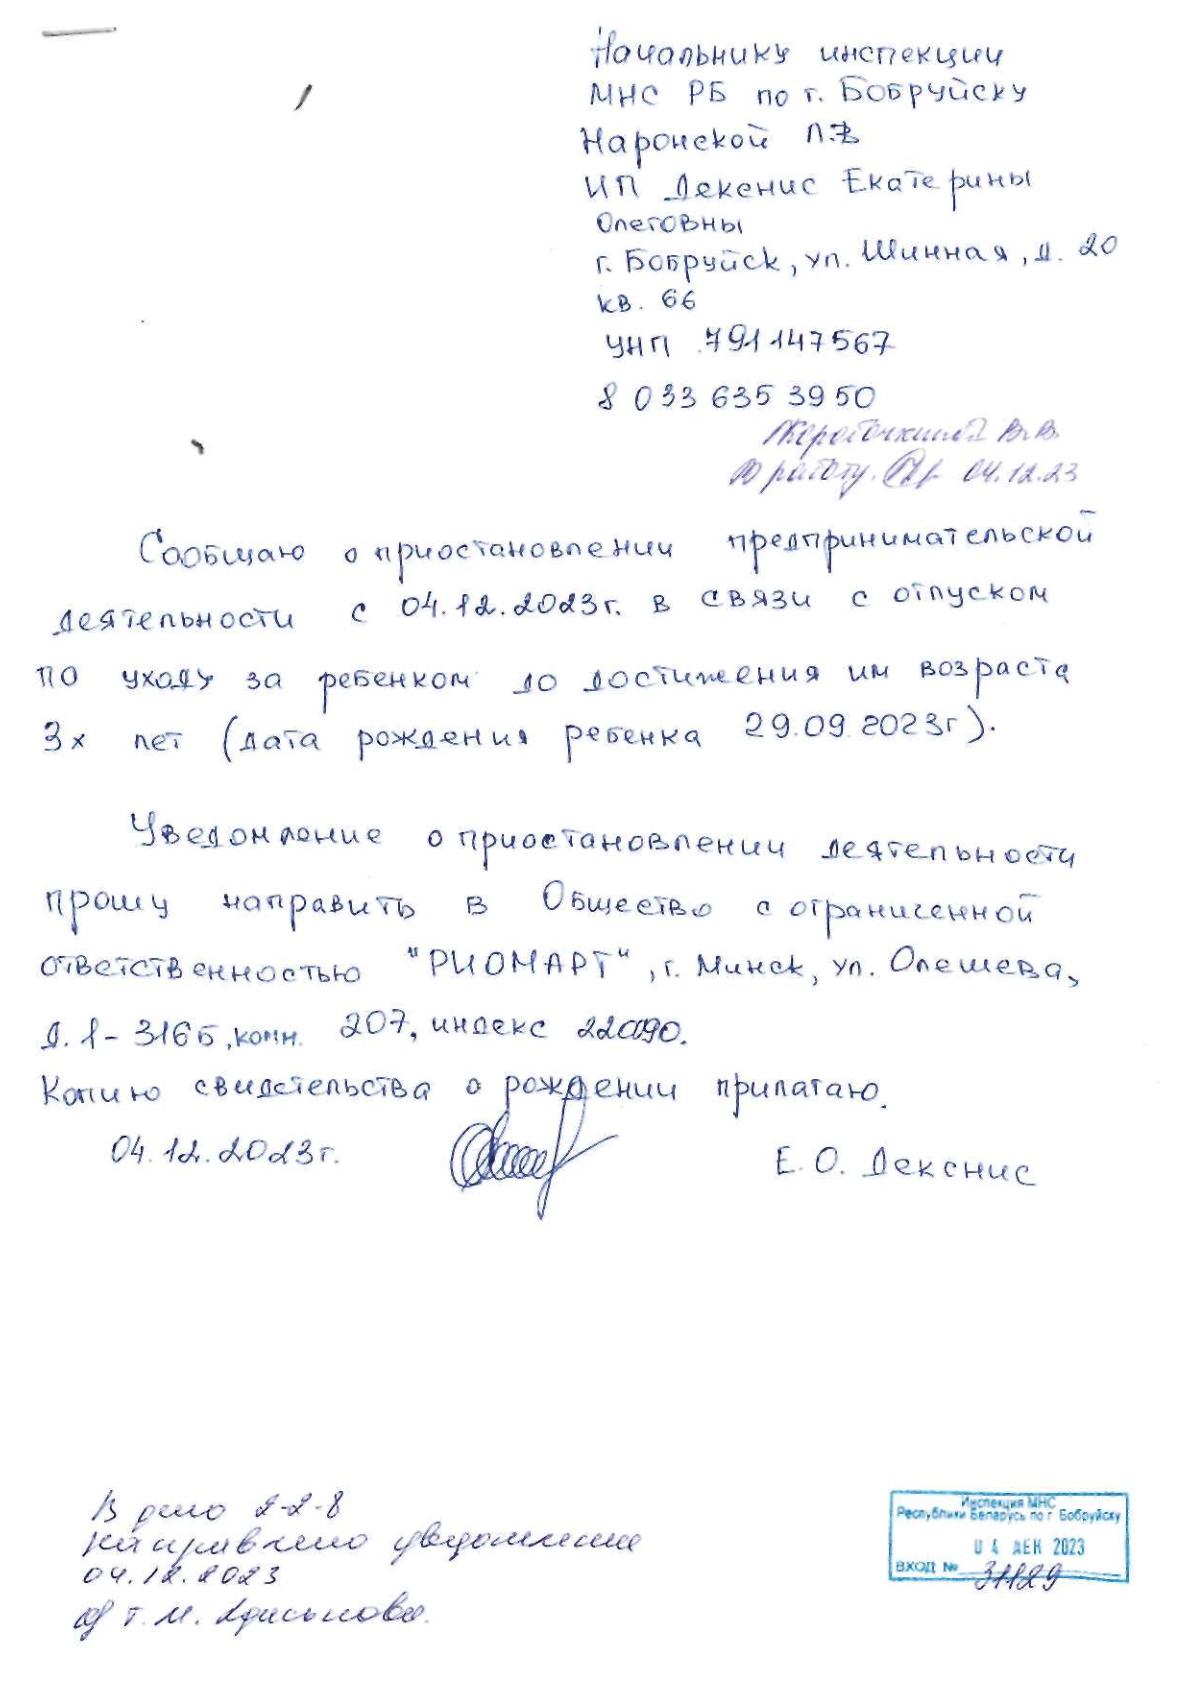 Начальнику инспекции
МНС РБ по г. Бобруйску
Наронской Л.В
ИП Декснис Екатерины
Олеговны
г. Бобруйск, ул. Шинная, д. 20
кв. 66
УНП 791147567
8 033 635 39 50
В.В.
В работу. 04.12.23
Сообщаю о приостановлении предпринимательской
деятельности с 04.12.2023г. в связи с отпуском
по уходу за ребенком до достижения им возраста
3х лет (дата рождения ребенка 29.09.2023г).
Уведомление о приостановлении деятельности
прошу направить в Общество с ограниченной
ответственностью "РИОМАРТ", г. Минск, ул. Олешева,
д. 1- 316Б, комн. 207, индекс 220090.
Копию свидетельства о рождении прилагаю.
04.12.2023г.
Е. О. Декснис
В дело 2-2-8
направлено уведомление
04.12.2023
Т.М.
Инспекция МНС
Республики Беларусь по г Бобруйску
04 ДЕК 2023
ВХОД № 31129